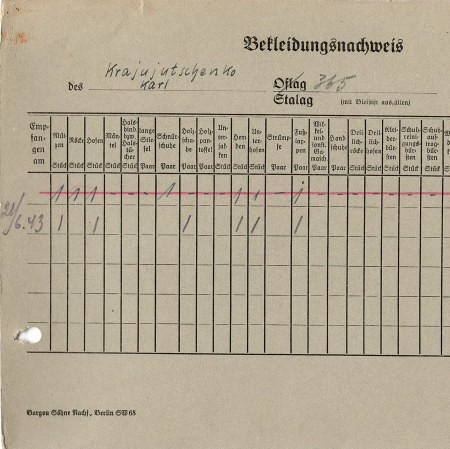 Bekleidungsnachweis
des Krajujutschenko
Karl
Oflag 365
Stalag (mit Bleistift ausfüllen)
Emp-
fangen
am
Müt-
zen
Stück
Röcke
Stück
Hosen
Stück
Män-
tel
Stück
Hals-
bind.
bzw.
Hals-
tücher
Stück
lange
Stie-
fel
Paar
Schnür-
schuhe
Paar
Holz-
schu-
he
Paar
Holz-
pan-
toffel
Paar
Un-
ter-
jacken
Stück
Hem-
den
Stück
Un-
ter-
hosen
Stück
Strümp-
fe
Paar
Fuß-
lap-
pen
Paar
Paar
Hand-
schuhe
Paar
Drillich-
röcke
Stück
Drillich-
hosen
Stück
Klei-
der-
bürsten
Stück
Schuh-
reini-
gungs-
bürsten
Stück
Schuh-
auftrag-
bürsten
Stück
1 1 1 - - - 1 - - - 1 1 - 1 - - - - - - -
21/
6.43 1 1 1 1 1 1
Gargou Söhne Nachf., Berlin SW 68